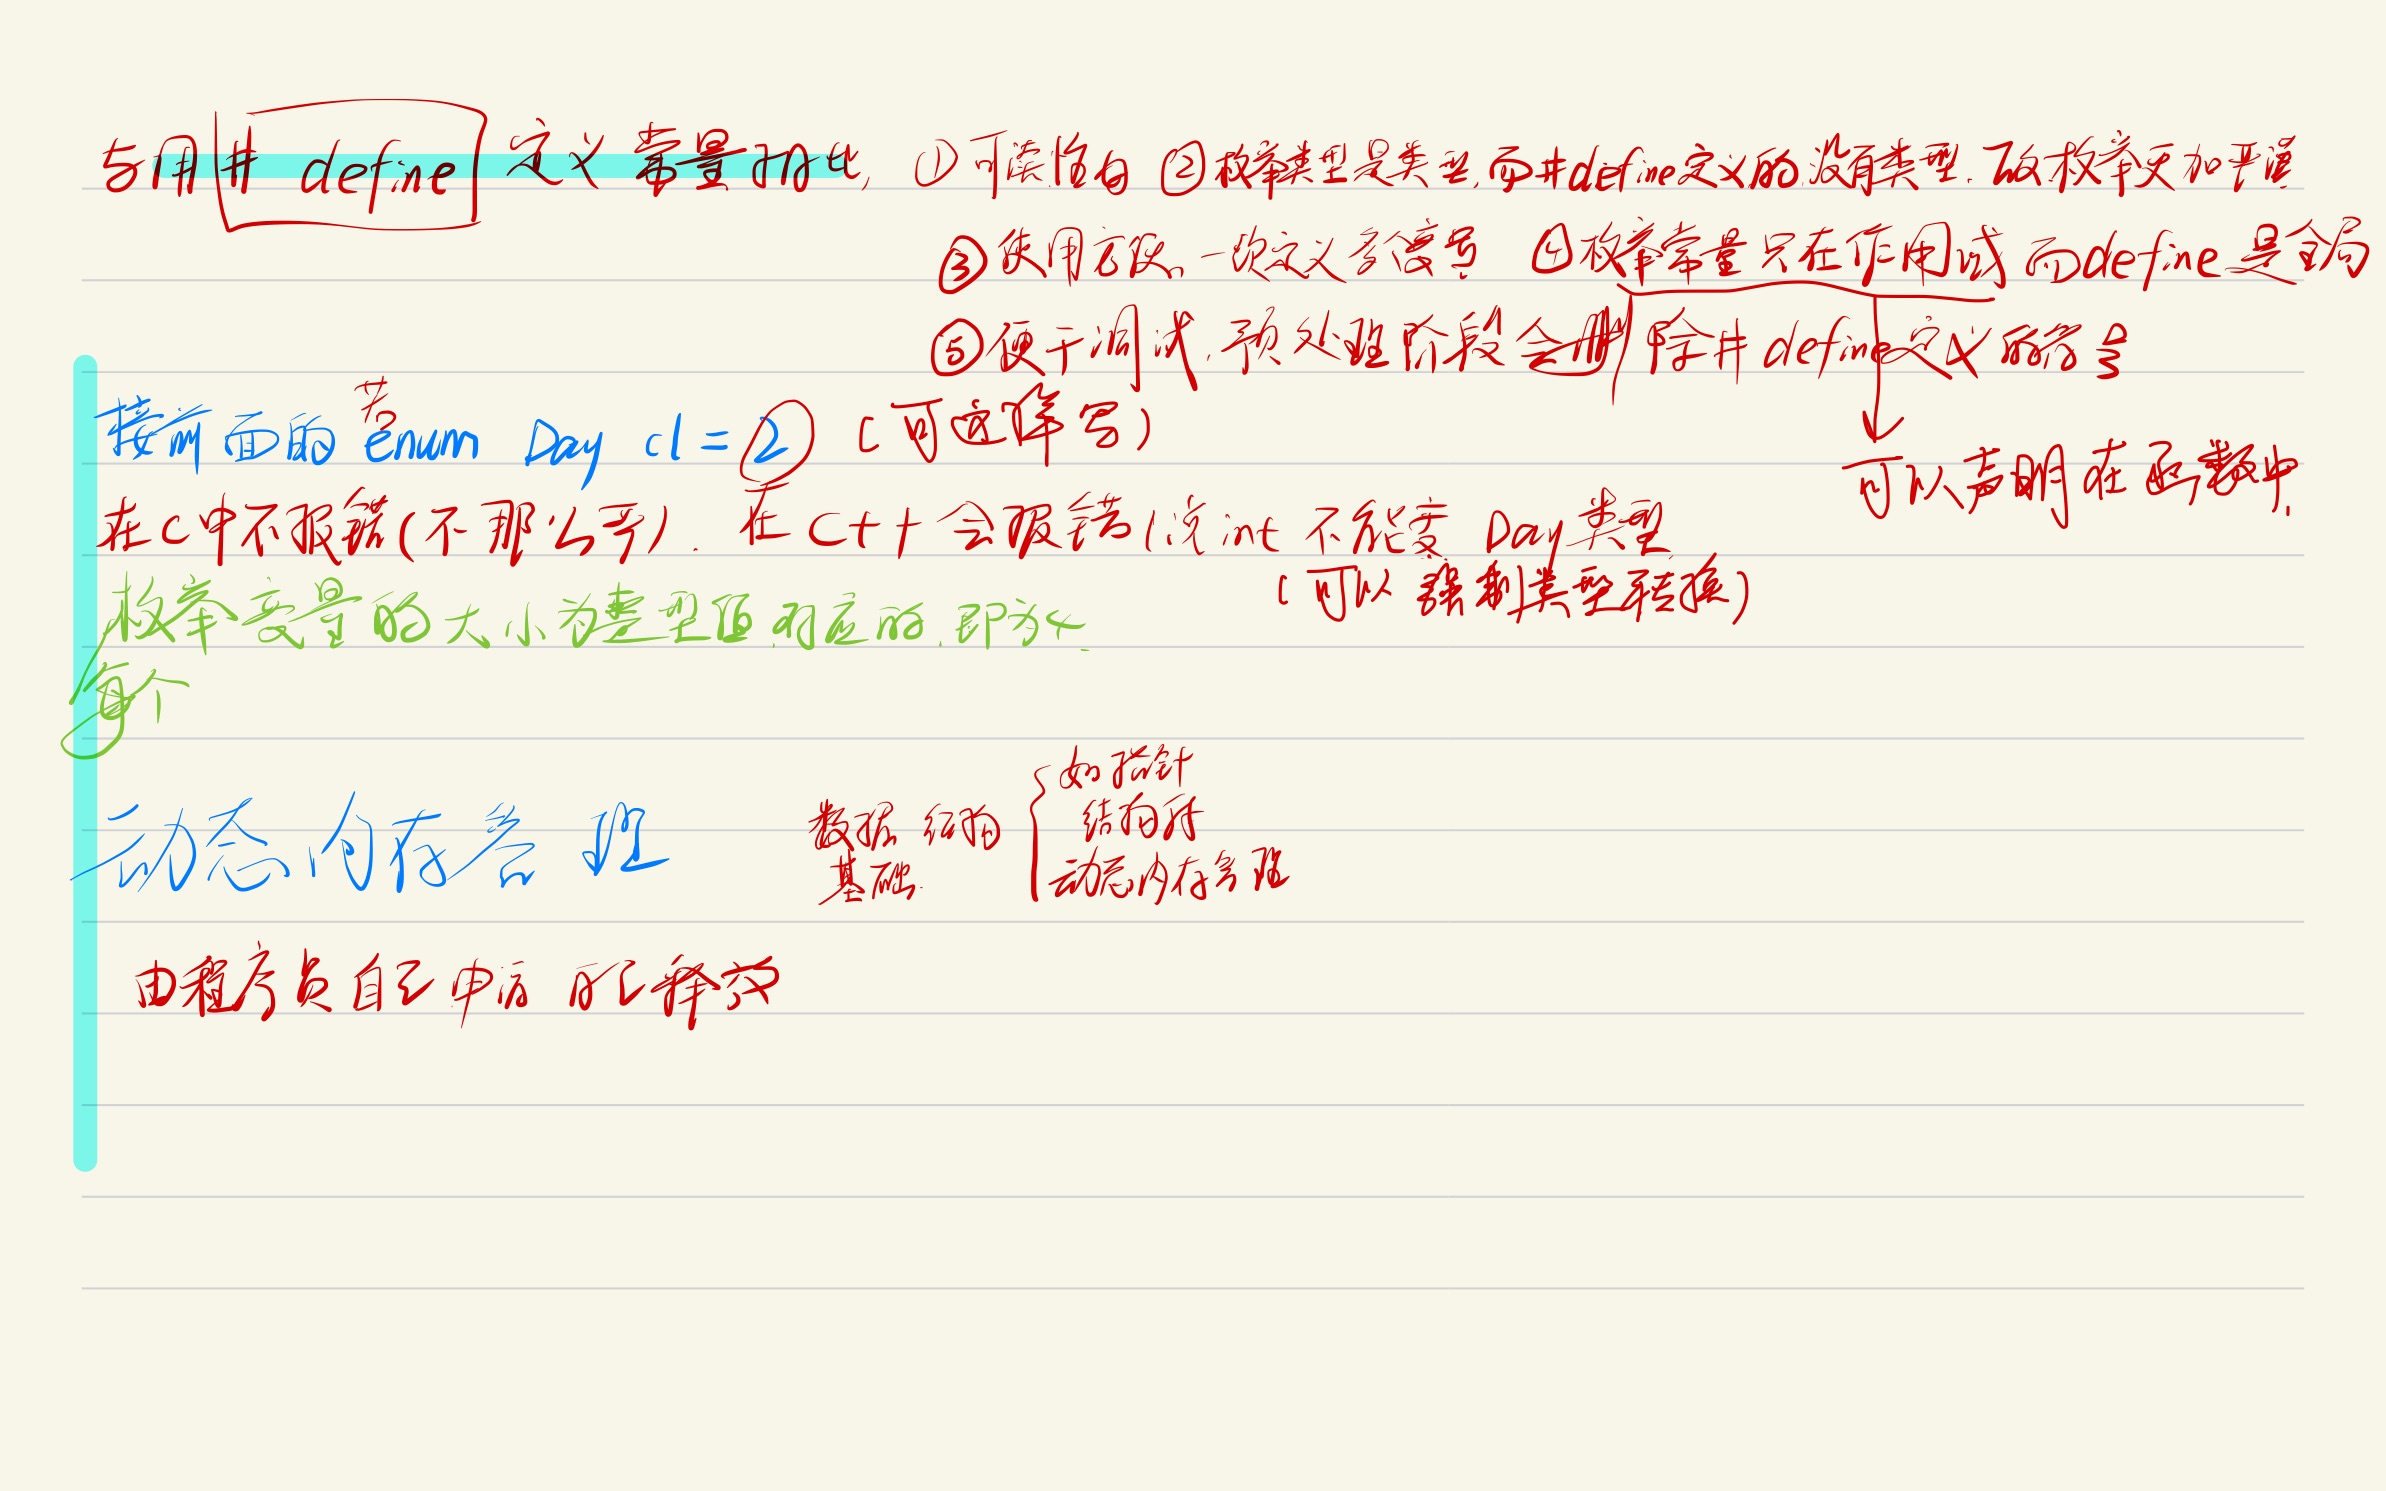 与用 # define 定义常量相比, ①可读性高 ②枚举类型是类型,而#define定义的没有类型.故枚举更加严谨
③使用方便,一次定义多个常量 ④枚举常量只在作用域 而define是全局
⑤便于调试.预处理阶段会删除#define定义的符号
可以声明在函数中.
接前面的若enum Day d = 2 (可这样写)
在C中不报错(不那么严). 在C++会报错(说int 不能变 Day类型
(可以 强制类型转换)
每个枚举变量的大小为整型值对应的.即为4.
动态内存管理
数据结构基础.
如指针
结构体
动态内存管理
由程序员自己申请 自己释放